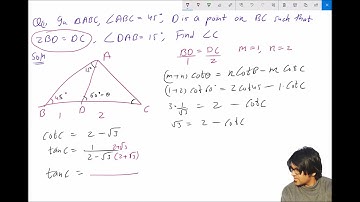 Q: In △ABC, ∠ABC = 45°, D is a point on BC such that
2BD = DC, ∠DAB = 15°, Find ∠C
Soln
BD/1 = DC/2 m = 1, n = 2
(m+n) cotθ = n cotB - m cotC
(1+2) cot60° = 2 cot45 - 1. cotC
3. 1/√3 = 2 - cotC
√3 = 2 - cotC
A
15°
45°
60° = θ
B 1 D 2 C
cotC = 2 - √3
tanC = 1/(2-√3) (2+√3)/(2+√3)
tanC =